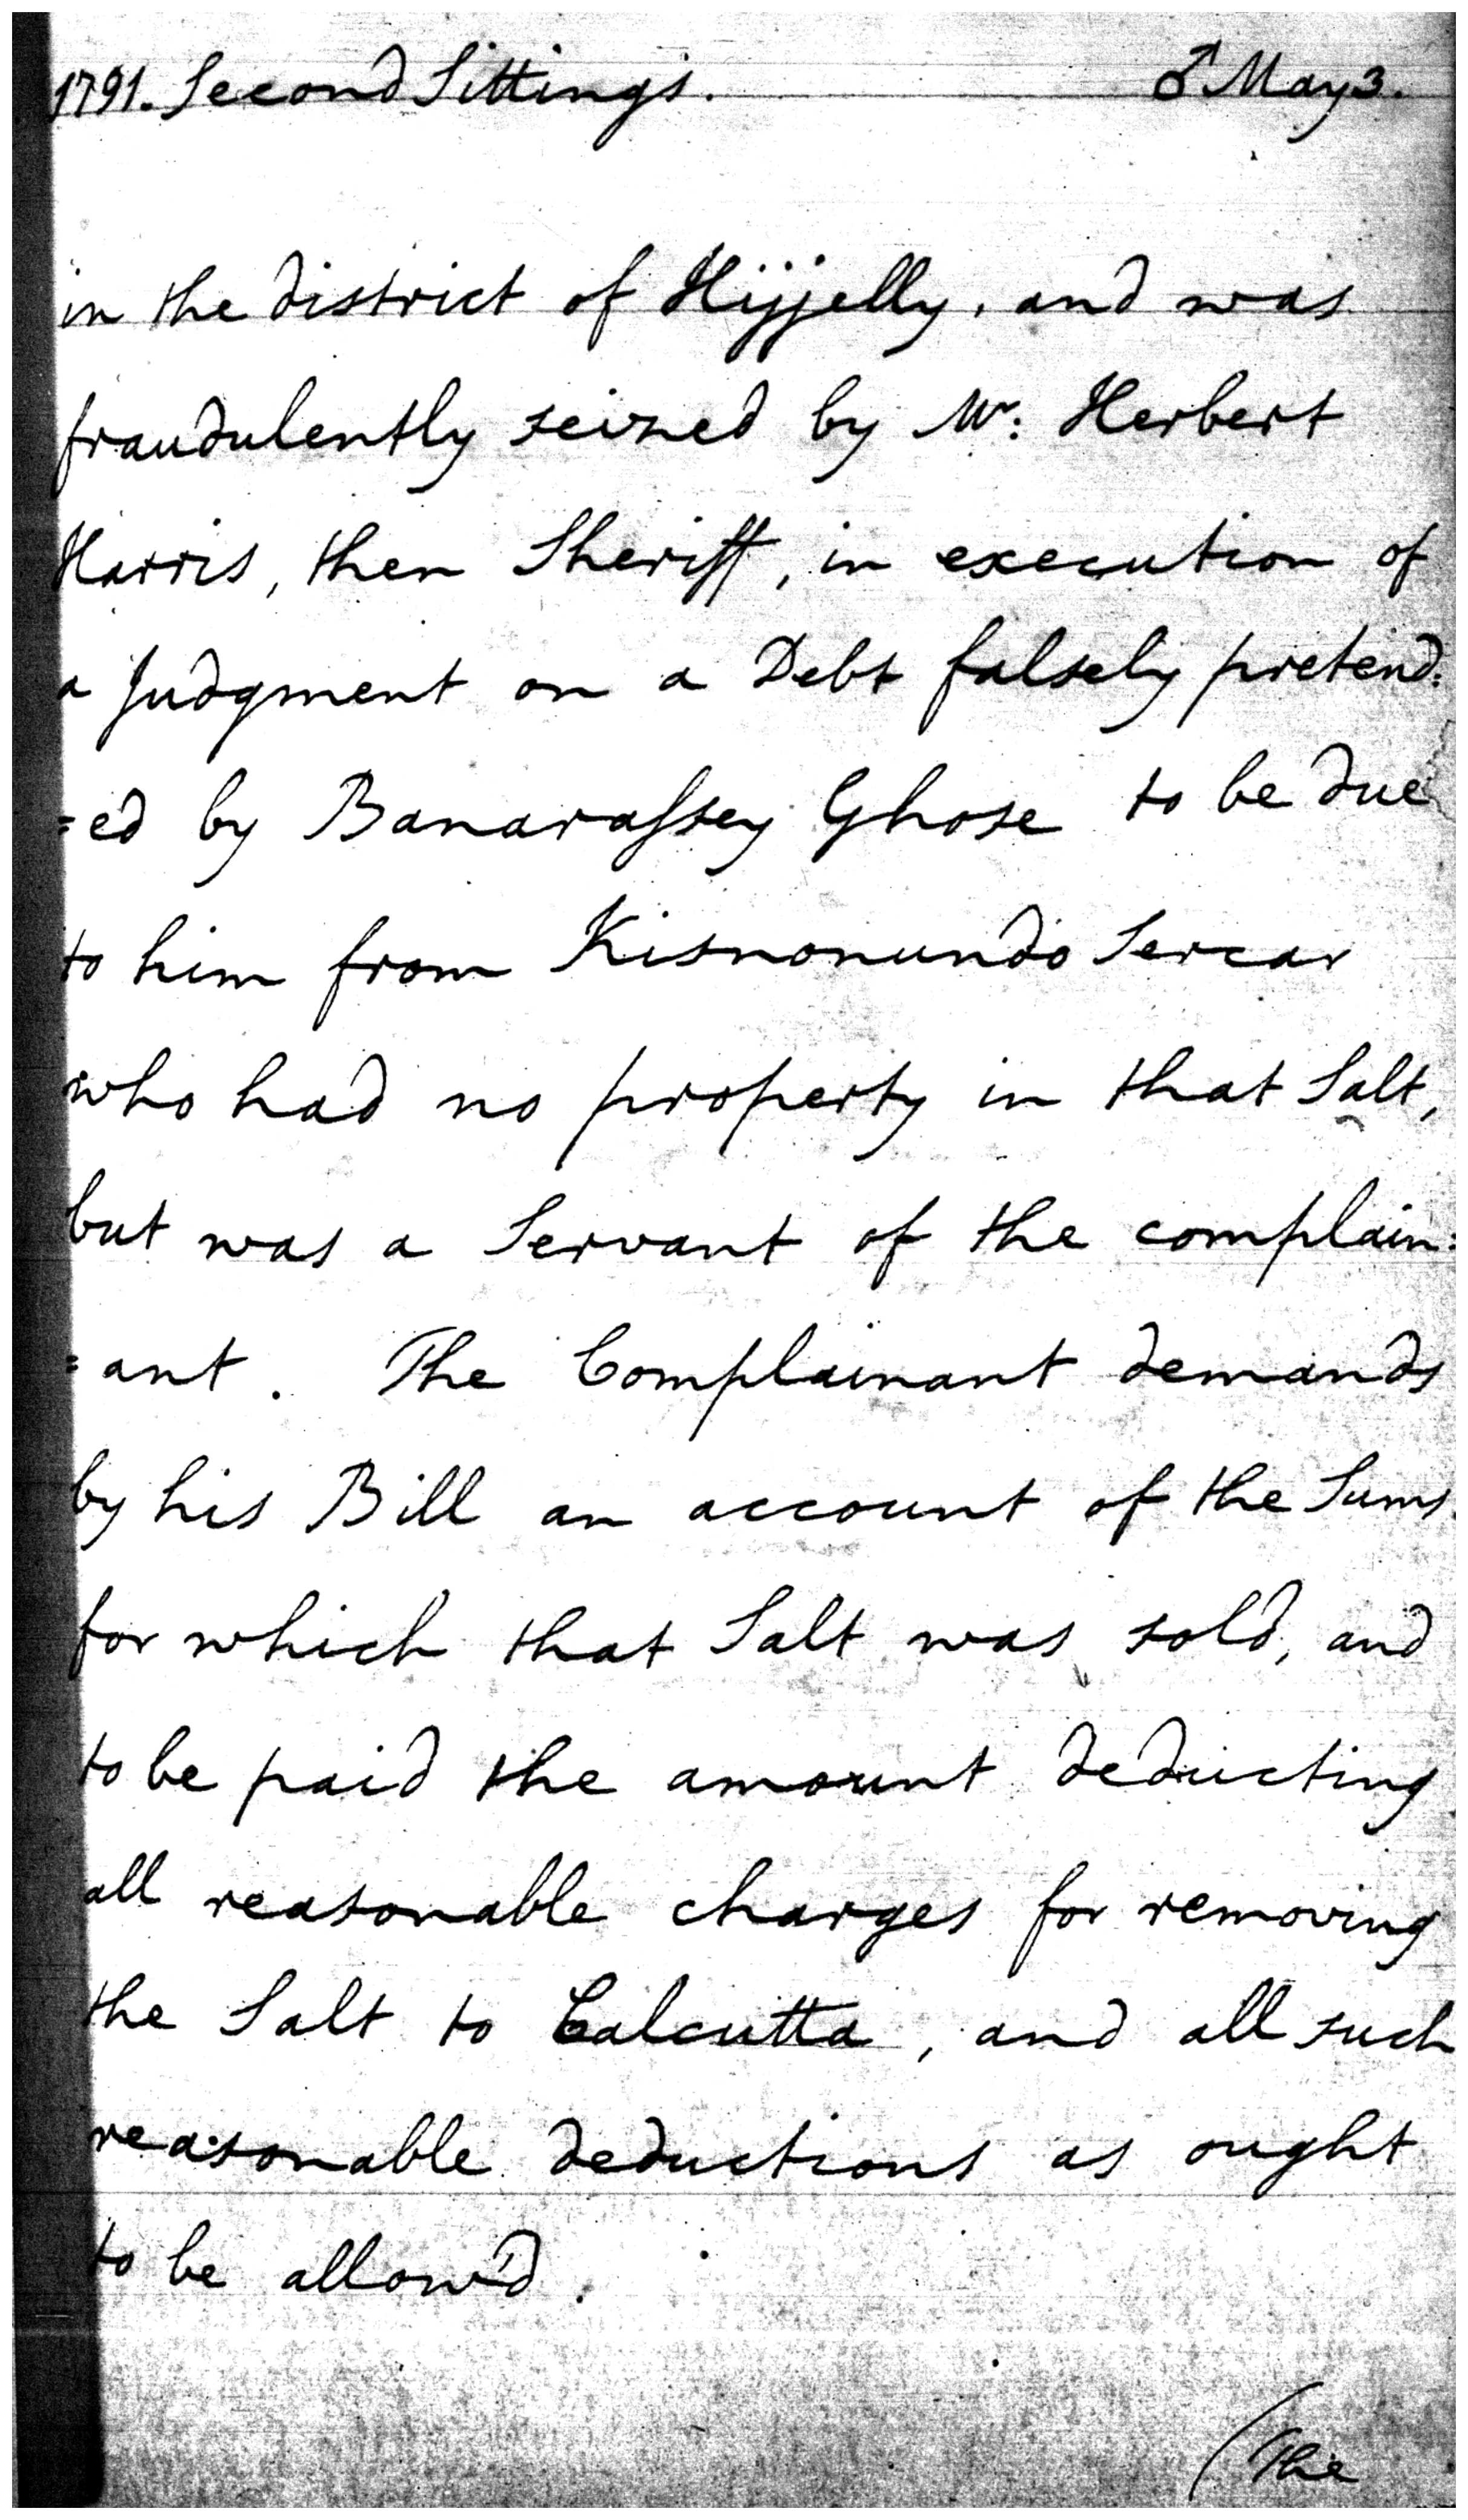 1791. Second Sittings. ♂ May 3.
in the district of Hijjelly, and was
fraudulently seized by Mr: Herbert
Harris, then Sheriff, in execution of
a Judgment on a Debt falsely pretend=
=ed by Banarassey Ghose to be due
to him from Kisnonundo Sercar
who had no property in that Salt,
but was a Servant of the complain=
=ant. The Complainant demands
by his Bill an account of the Sums
for which that Salt was sold, and
to be paid the amount deducting
all reasonable charges for removing
the Salt to Calcutta, and all such
reasonable deductions as ought
to be allow'd.
(The